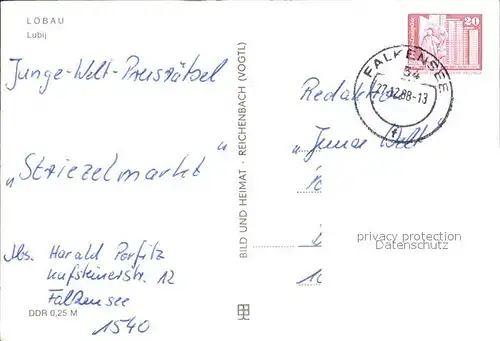 LÖBAU
Lubij
Junge-Welt-Preisrätsel
"Striezelmarkt"
Abs. Harald Porfitz
Kufsteinerstr. 12
Falkensee
1540
DDR 0,25 M
BILD UND HEIMAT · REICHENBACH (VOGTL)
20
FALKENSEE
54
27.12.88-13
f
Redaktio
"Junge Welt"
privacy protection
Datenschutz